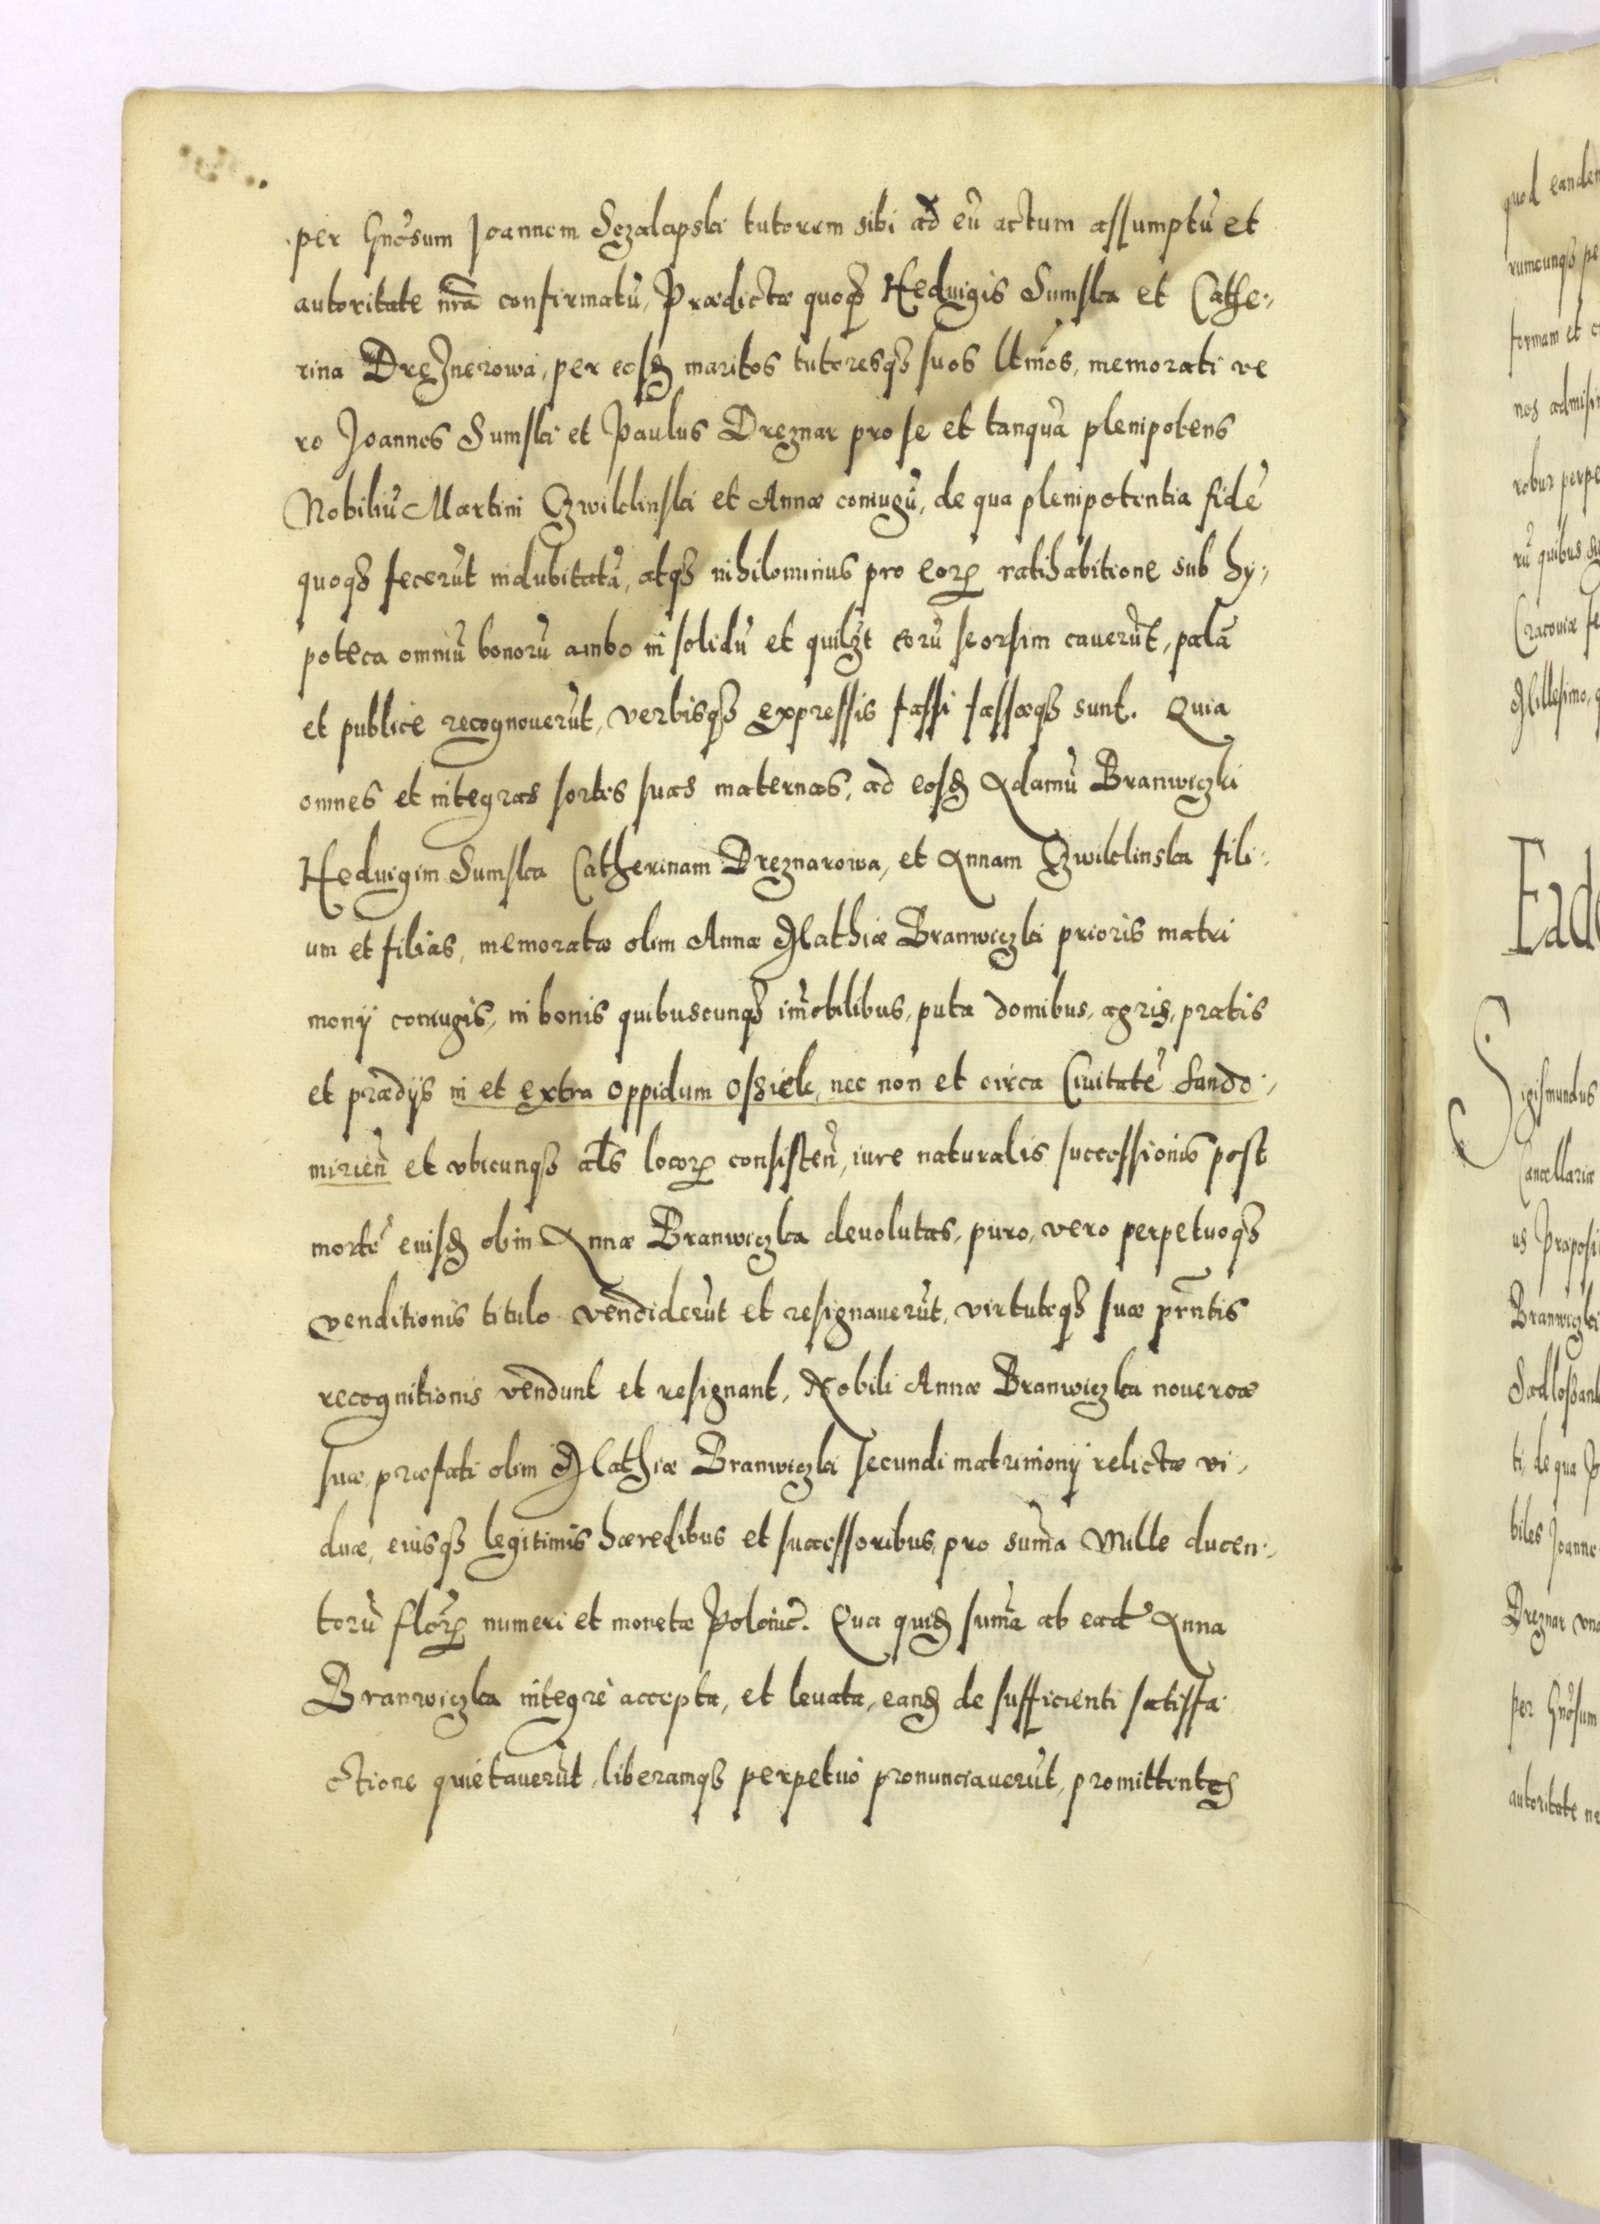 per Gnōsum Joannem Sczalapski tutorem sibi ad eū actum assumptū et
autoritate nrā confirmatū, Prædictæ quoqȝ Hedvigis Sumska et Cathe-
rina Dreznerowa, per eosd maritos tutoresqȝ suos ltmōs, memorati ve
ro Joannes Sumski et Paulus Dreznar pro se et tanquā plenipotens
Nobiliū Martini Czwiklinski et Annæ coniugū, de qua plenipotentia fidē
quoqȝ fecerūt indubitatā, atqȝ nihilominus pro eorꝝ ratihabitione sub hy-
poteca omniū bonorū ambo in solidū et quilȝt eorū seorsim caverūt, palā
et publice recognoverūt, verbisqȝ expressis fassi fassæqȝ sunt. Quia
omnes et integras sortes suas maternas, ad eosd Adamū Branwiczki
Hedvigim Sumska Catherinam Dreznarowa, et Annam Czwiklinska fili-
um et filias, memoratæ olim Annæ Mathiæ Branwiczki prioris matri
monij coniugis, in bonis quibuscunqȝ im̄obilibus, puta domibus, agris, pratis
et prædijs in et extra oppidum Osziek, nec non et circa Civitatē Sando-
miriēn et vbicunqȝ als locorꝝ consistēn, iure naturalis successionis post
mortē eiusd olim Annæ Branwiczka devolutas, puro, vero perpetuoqȝ
venditionis titulo vendiderūt et resignaverūt, virtuteqȝ suæ prn̄tis
recognitionis vendunt et resignant, Nobili Annæ Branwiczka novercæ
suæ, præfati olim Mathiæ Branwiczki secundi matrimonij relictæ vi-
duæ, eiusqȝ legitimis hæredibus et successoribus, pro sum̄a Mille ducen-
torū flōrꝝ numeri et monetæ Polonic̄. Qua quid sum̄a ab ead Anna
Branwiczka integrè accepta, et levata, eand de sufficienti satisfa
ctione quietaverūt, liberamqȝ perpetuò pronunciaverūt, promittentes
quod eandem
rumcunqȝ pe
formam et c
nos admisi
robur perpe
rū quibus
Cracoviæ fe
Millesimo, q
Eade
Sigismundus
Cancellariæ
us Præposi
Branwiczki
ti, de qua P
biles Joanne
Dreznar vna
per Gnōsum
autoritate n